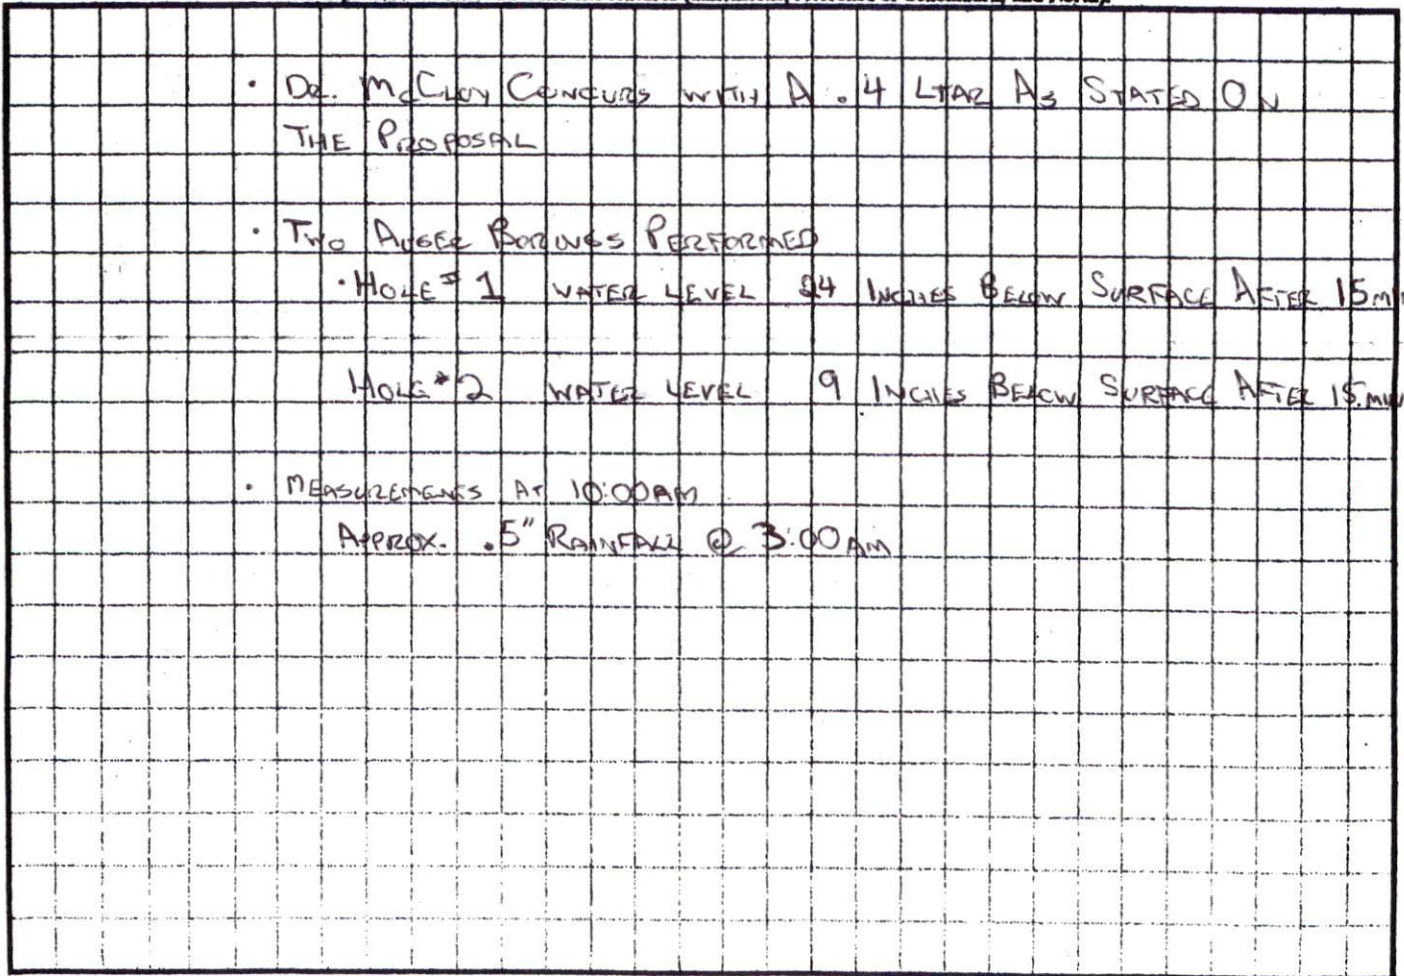 • Dr. McCloy Concurs with A .4 LTAR As Stated On
The Proposal
• Two Auger Borings Performed
• Hole # 1 water level 24 Inches Below Surface After 15 min
Hole # 2 water level 9 Inches Below Surface After 15 min
• Measurements At 10:00 AM
Approx. .5" Rainfall @ 3:00 AM